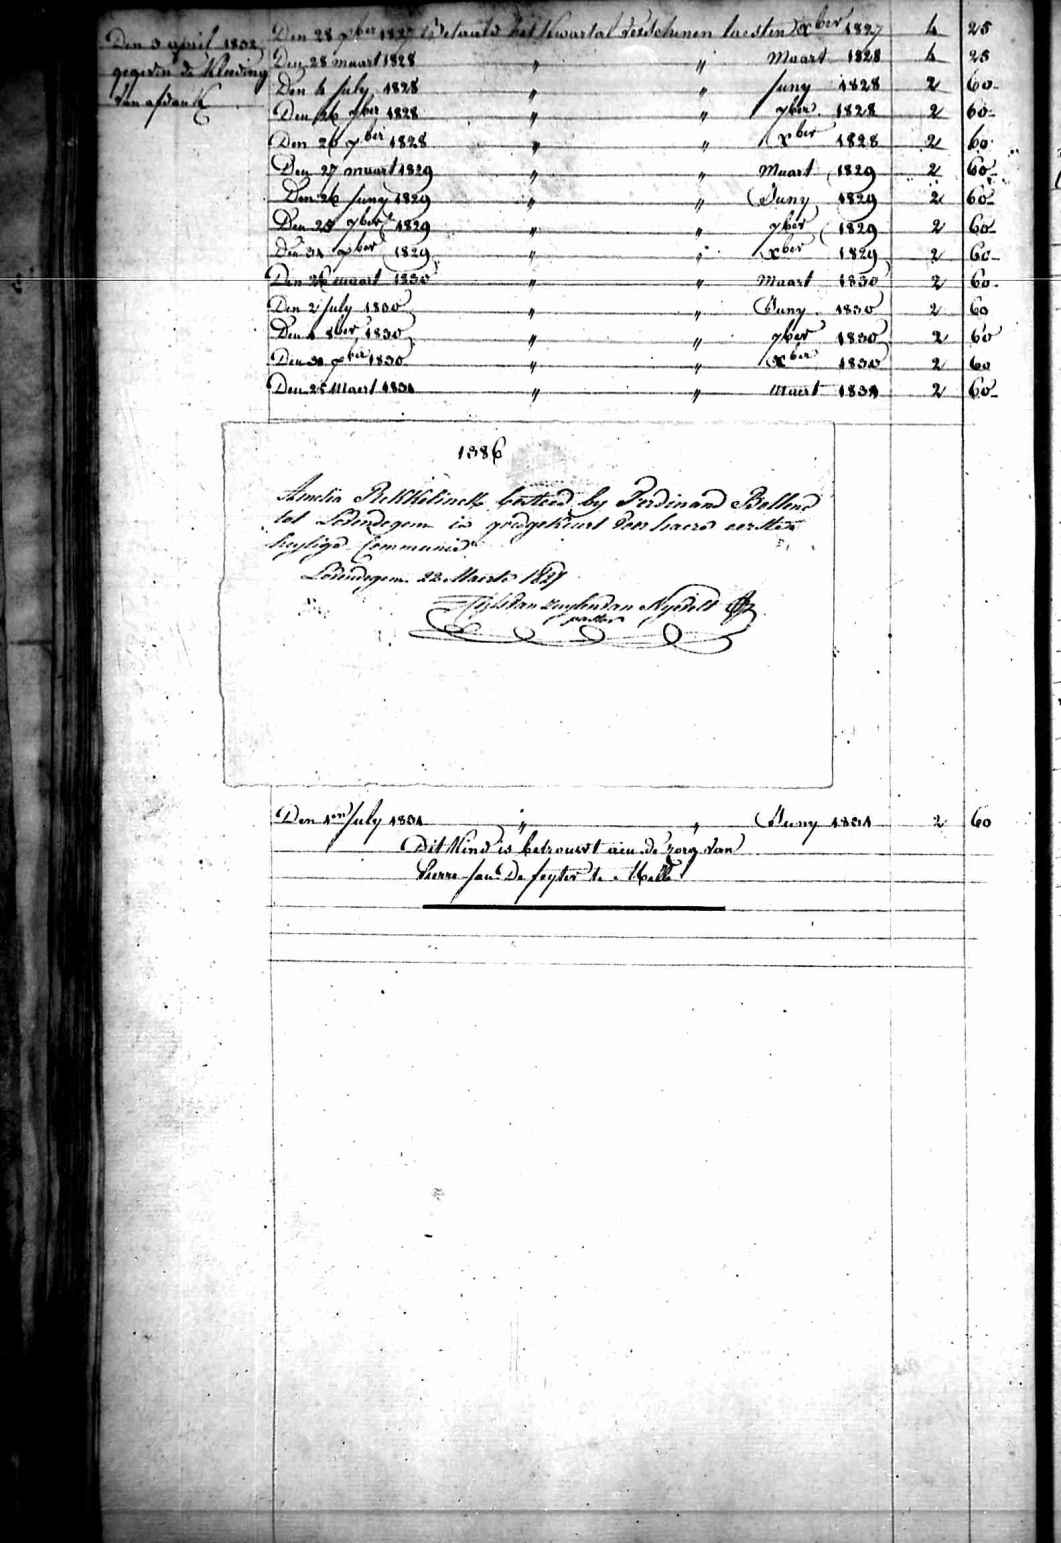 Den 3 april 1832
gegeven de Kleeding
van afdank
Den 28 xber 1827 betaald het Kwartal verschenen laesten xber 1827 4 25
Den 28 maart 1828 " " Maart 1828 4 25
Den 4 July 1828 " " Juny 1828 2 60
Den 26 7ber 1828 " " 7ber 1828 2 60
Den 26 xber 1828 " " xber 1828 2 60
Den 27 maart 1829 " " Maart 1829 2 60
Den 26 Juny 1829 " " Juny 1829 2 60
Den 25 7ber 1829 " " 7ber 1829 2 60
Den 31 xber 1829 " " xber 1829 2 60
Den 26 maart 1830 " " Maart 1830 2 60
Den 2 July 1830 " " Juny 1830 2 60
Den 1 8ber 1830 " " 7ber 1830 2 60
Den 30 xber 1830 " " xber 1830 2 60
Den 25 Maert 1831 " " Maert 1831 2 60
1386
Amelia besteed by Ferdinand
tot Lovendegem is goedgekeurt voor haere eerste
heylige Communie
Lovendegem 22 Maerte 1827
van Zuylen van Nyevelt
pastor
Den 1en July 1831 " " Juny 1831 2 60
Dit Kind is betrouwt aen de zorg van
Pierre De feyter te Melle